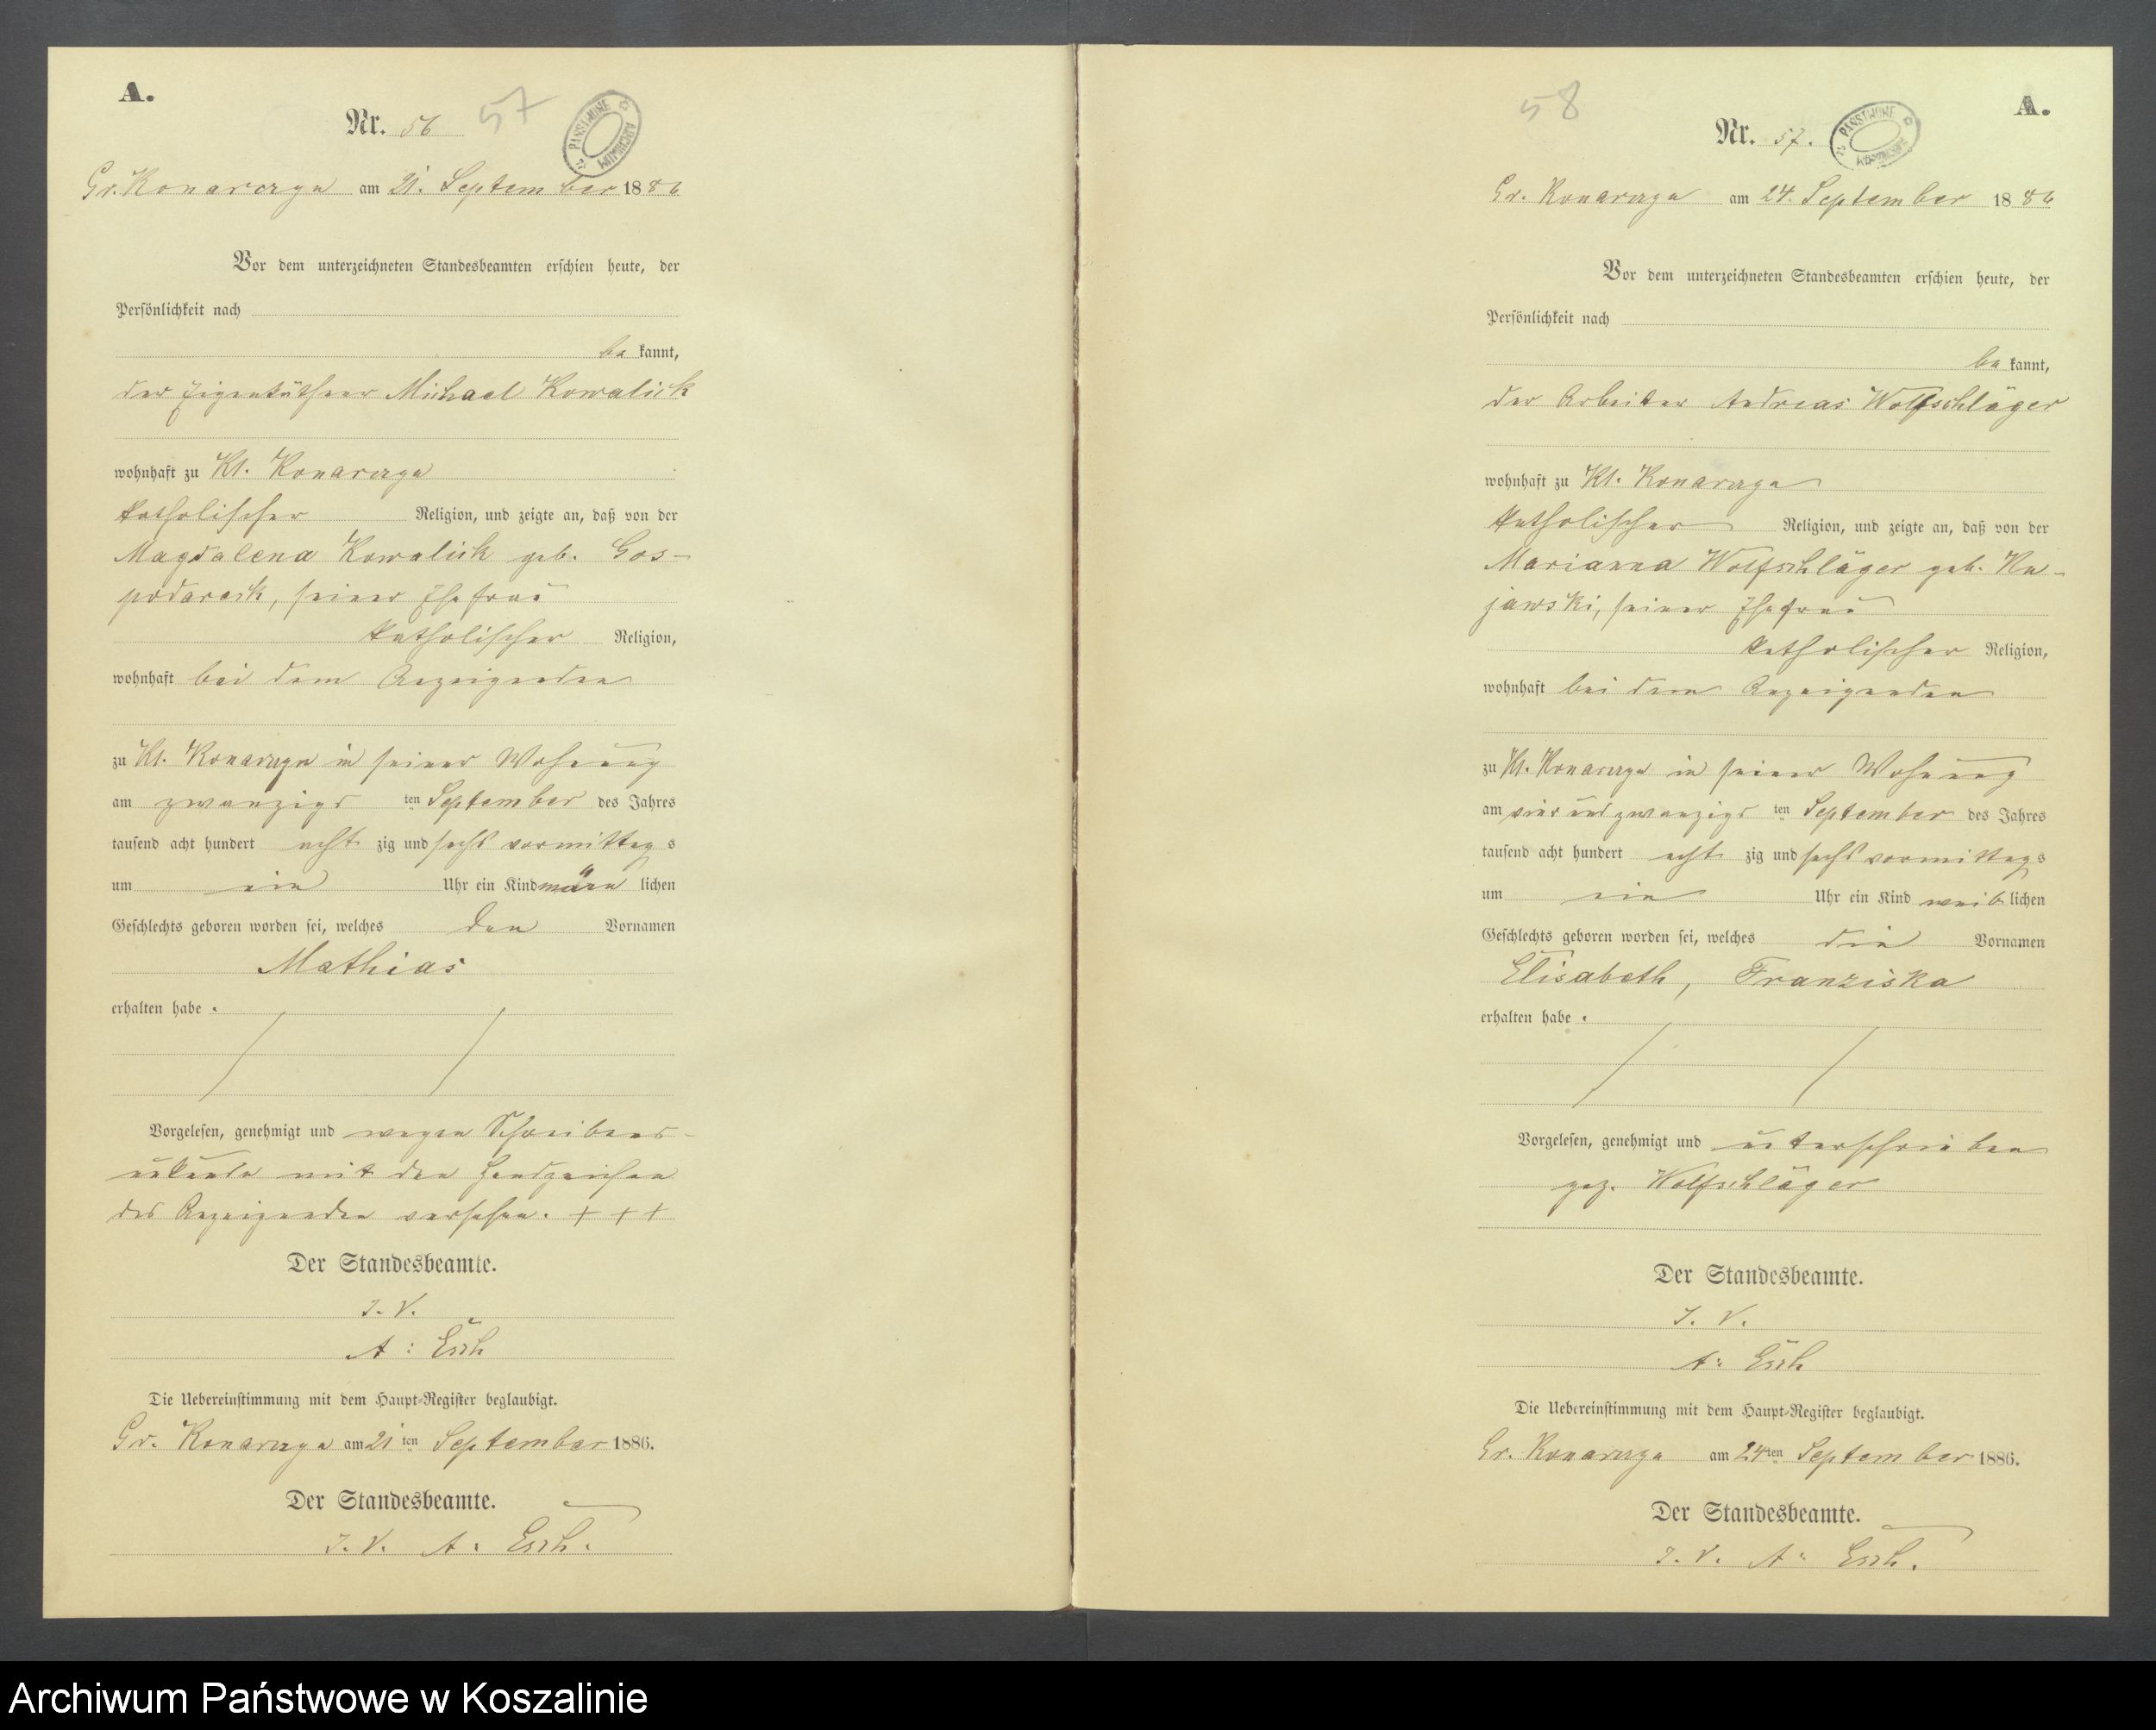 A.
Nr. 56
57
PAŃSTWOWE ARCHIWUM
Gr. Konarczyn am 21. September 1886
Vor dem unterzeichneten Standesbeamten erschien heute, der
Persönlichkeit nach
be kannt,
der Eigenthümer Michael Kowalick
wohnhaft zu Kl. Konarczyn
katholischer Religion, und zeigte an, daß von der
Magdalena Kowalick geb. Gos-
podarack, seiner Ehefrau
katholischer Religion,
wohnhaft bei dem Anzeigenden
zu Kl. Konarczyn in seiner Wohnung
am zwanzigs ten September des Jahres
tausend acht hundert acht zig und sechs vormittag s
um ein Uhr ein Kind männ lichen
Geschlechts geboren worden sei, welches den Vornamen
Mathias
erhalten habe.
Vorgelesen, genehmigt und wegen Schreibens-
unkunde mit den Handzeichen
des Anzeigenden versehen. + + +
Der Standesbeamte.
I. V.
A: Esch
Die Uebereinstimmung mit dem Haupt-Register beglaubigt.
Gr. Konarczyn am 21 ten September 1886.
Der Standesbeamte.
I. V. A. Esch.
58
A.
Nr. 57.
PAŃSTWOWE ARCHIWUM
Gr. Konarczyn am 24. September 1886
Vor dem unterzeichneten Standesbeamten erschien heute, der
Persönlichkeit nach
be kannt,
der Arbeiter Andreas Wolfschläger
wohnhaft zu Kl. Konarczyn
katholischer Religion, und zeigte an, daß von der
Marianna Wolfschläger geb. Ku-
jawski, seiner Ehefrau
katholischer Religion,
wohnhaft bei dem Anzeigenden
zu Kl. Konarczyn in seiner Wohnung
am vier und zwanzigs ten September des Jahres
tausend acht hundert acht zig und sechs vormittag s
um ein Uhr ein Kind weib lichen
Geschlechts geboren worden sei, welches die Vornamen
Elisabeth, Franziska
erhalten habe.
Vorgelesen, genehmigt und unterschrieben
gez. Wolfschläger
Der Standesbeamte.
I. V.
A: Esch
Die Uebereinstimmung mit dem Haupt-Register beglaubigt.
Gr. Konarczyn am 24 ten September 1886.
Der Standesbeamte.
I. V. A: Esch.
Archiwum Państwowe w Koszalinie